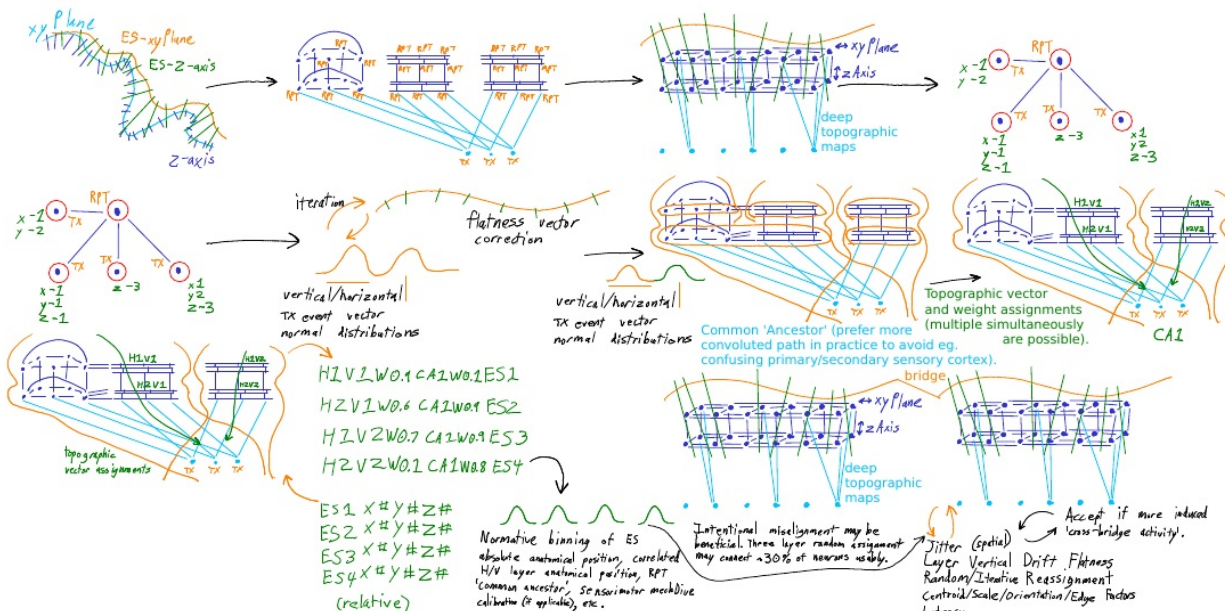 xy Plane
ES-xyPlane
ES-Z-axis
Z-axis
RPT
RPT
RPT RPT RPT
RPT RPT RPT
RPT RPT RPT
RPT RPT RPT
RPT RPT RPT
TX TX TX
xyPlane
zAxis
deep
topographic
maps
RPT
x-1
y-2
TX
TX TX TX
x-1
y-1
z-1
z-3
x1
y2
z-3
RPT
x-1
y-2
TX
TX TX TX
x-1
y-1
z-1
z-3
x1
y2
z-3
iteration
flatness vector
correction
vertical/horizontal
TX event vector
normal distributions
vertical/horizontal
TX event vector
normal distributions
TX TX TX
Common 'Ancestor' (prefer more
convoluted path in practice to avoid eg.
confusing primary/secondary sensory cortex).
H1V1
H2V1
H1V2
H2V2
TX TX TX
CA1
Topographic vector
and weight assignments
(multiple simultaneously
are possible).
H1V1
H2V1
H1V2
H2V2
topographic
vector assignments
TX TX TX
H1V1W0.9CA1W0.1ES1
H2V1W0.6 CA1W0.9 ES2
H1V2W0.7 CA1W0.9ES3
H2V2W0.1 CA1W0.8 ES4
ES1 X#Y#Z#
ES2 X#Y#Z#
ES3 X#Y#Z#
ES4 X#Y#Z#
(relative)
Normative binning of ES
absolute anatomical position, correlated
H/V layer anatomical position, RPT
'common ancestor', sensorimotor
calibration (if applicable), etc.
bridge
xyPlane
zAxis
deep
topographic
maps
Intentional misalignment may be
beneficial. Three layer random assignment
may connect ~30% of neurons usably.
Accept if more induced
'cross-bridge activity'.
Jitter (spatial)
Layer Vertical Drift Flatness
Random/Iterative Reassignment
Centroid/Scale/Orientation/Edge Factors